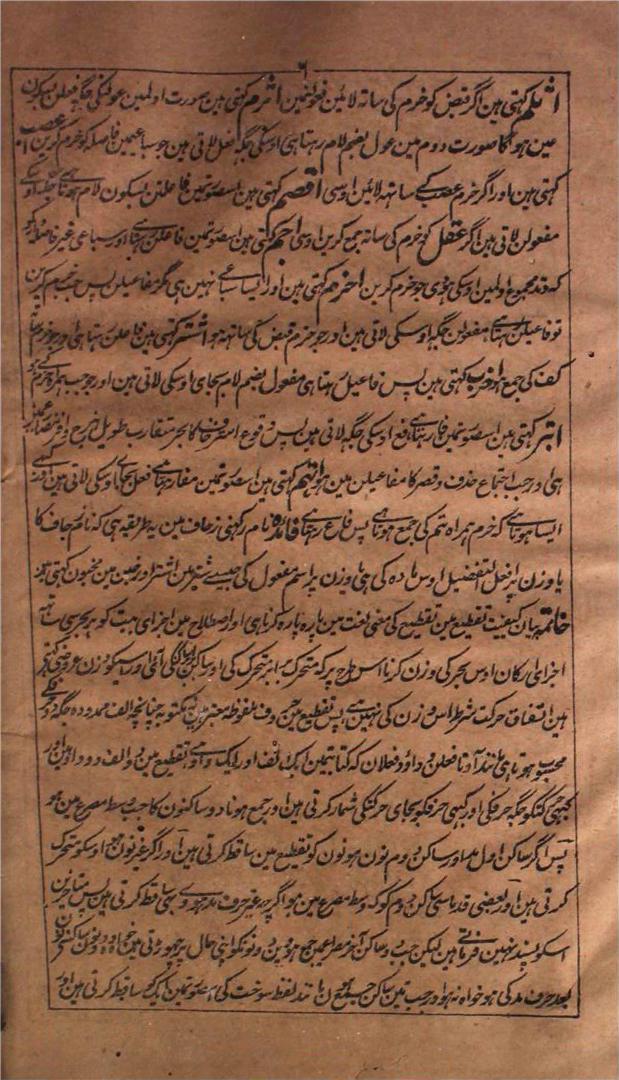 ۶
اثلم کہتی ہین اگر قبض کو خرم کی ساتہ لائین فعولنمین اثرم کہتی ہین صورت اولمین عولنکی جگہ فعلن بسکون
عین ہوگا صورت دوم مین عول بضم لام رہتا ہی اوسکی جگہ فعل لاتی ہین جو سباعیمین فاصلہ کو خرم کرین اعضب
کہتی ہین اور اگر خرم عصب کے ساتہہ لائین اوسی اقصم کہتی ہین اسصورتمین فاعلتن بسکون لام ہوتا ہے جگہ اوسکی
مفعولن لاتی ہین اگر عقل کو خرم کی ساتہ جمع کرین اوسی اجم کہتی ہین اسصورتمین فاعلن رہتا ہے اور سباعی غیر فاصلہ کو
کہ وتد مجموع اولمین اوسکی ہووی جو خرم کرین اخرم کہتی ہین اور ایسا سباعے نہین ہی مگر مفاعیلن پس جب خرم کرین
تو فاعیلن رہتا ہے مفعولن جگہ اوسکی لاتی ہین اور جو خرم قبض کی ساتہہ ہو اشتر کہتی ہین فاعلن رہتا ہی اور جو خرم ساتہ
کف کی جمع ہو اخرب کہتی ہین پس فاعیل رہتا ہی مفعول بضم لام بجای اوسکی لاتی ہین اور جو جب ہمراہ خرم کے ہو
ابتر کہتی ہین اسصورتمین فا رہتا ہے فع اوسکی جگہ لاتی ہین پس وقوع اسزحاف کا بحر متقارب طویل ہزج وافر مضارع مین
ہی اور جب اجتماع حذف و قصر کا مفاعیلن مین ہو اہتم کہتی ہین اسصورتمین مفاع رہتا ہے فعول بجای اوسکی لاتی ہین اور
ایسا ہوتا ہے کہ خرم ہمراہ ہتم کی جمع ہوتا ہے پس فاع رہتا ہے فائدہ نام رکہنی زحاف مین یہ طریقہ ہی کہ نام زحاف کا
یا وزن پر افعل التفضیل اوس مادہ کی ہی یا وزن پر اسم مفعول کی جیسے شتر مین اشتر اور خبن مین مخبون کہتی ہین
خاتمہ بیان کیفیت تقطیع مین تقطیع کی معنی لغت مین پارہ پارہ کرنا ہی اور اصطلاح مین اجزای بیت کو ہر بحر سی ساتہہ
اجزای ارکان اوس بحر کی وزن کرنا اس طرح پر کہ متحرک برابر متحرک کی اور ساکن ساکن کی آئی اور اسیکو وزن عروضی کہتی
ہین اتفاق حرکت شرط اس وزن کی نہین ہے پس تقطیع مین حروف ملفوظہ معتبر ہین نہ مکتوبہ چنانچہ الف ممدودہ جگہ دو حرف کے
محسوب ہوتا ہی مانند آدنا فعلن و داؤد فعلان کہ کتابتمین ایک الف اور ایک واو ہے تقطیع مین دو الف دو واو ہین اور
کبہی حرکتکو جگہ حرفکی اور کبہی حرفکو بجای حرکتکی شمار کرتی ہین اور جمع ہونا دو ساکنون کا جب وسط مصرع مین ہو
پس اگر ساکن اول مد اور ساکن دوم نون ہو نون کو تقطیع مین ساقط کرتی ہین اور اگر غیر نون ہو اوسکو متحرک
کرتی ہین اور بعضی قدما سی ساکن دوم کو کہ وسط مصرع مین ہو اگرچہ غیر حرف مد ہووے بہی ساقط کرتی ہین پس متاخرین
اسکو پسند نہین فرماتے ہین لیکن جب دو ساکن آخر مصراعمین جمع ہووین دونونکو اپنی حال پر چہوڑتی ہین خواہ وہ نون ساکن
بعد حرف مد کی ہو خواہ نہ ہو اور جب تین ساکن جمع ہون مانند لفظ سوخت کی اسصورتمین ایک کو ساقط کرتی ہین اور